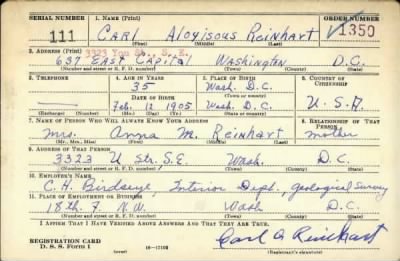 SERIAL NUMBER 1. NAME (Print) ORDER NUMBER
111 CARL Aloyisous Reinhart 1350
(First) (Middle) (Last)
2. ADDRESS (Print) 3323 You St., S.E.
637 East Capital Washington D.C.
(Number and street or R. F. D. number) (Town) (County) (State)
3. TELEPHONE 4. AGE IN YEARS 5. PLACE OF BIRTH 6. COUNTRY OF CITIZENSHIP
35 Wash. D.C.
DATE OF BIRTH
Feb. 12 1905 Wash. D.C. U.S.A.
(Exchange) (Number) (Mo.) (Day) (Yr.) (State or country)
7. NAME OF PERSON WHO WILL ALWAYS KNOW YOUR ADDRESS 8. RELATIONSHIP OF THAT PERSON
Mrs. Anna M. Reinhart mother
(Mr., Mrs., Miss) (First) (Middle) (Last)
9. ADDRESS OF THAT PERSON
3323 U Str. S.E. Wash. D.C.
(Number and street or R. F. D. number) (Town) (County) (State)
10. EMPLOYER'S NAME
C.H. Birdseye, Interior Dept. geological Survey
11. PLACE OF EMPLOYMENT OR BUSINESS
18th. F. N.W. Wash D.C.
(Number and street or R. F. D. number) (Town) (County) (State)
I AFFIRM THAT I HAVE VERIFIED ABOVE ANSWERS AND THAT THEY ARE TRUE.
REGISTRATION CARD
D. S. S. Form 1 (over) 16—17105 Carl A Reinhart
(Registrant's signature)